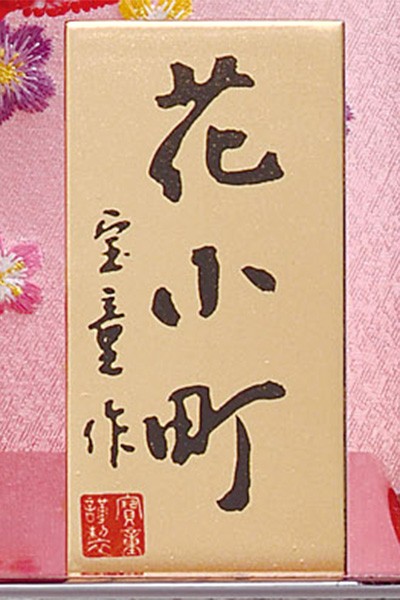 花小町
宝童作
寳童
謹製